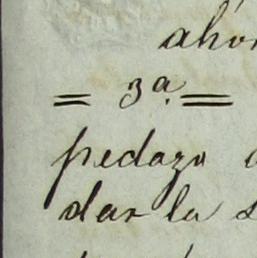 ahor
= 3ª. =
pedazo a
dar la s